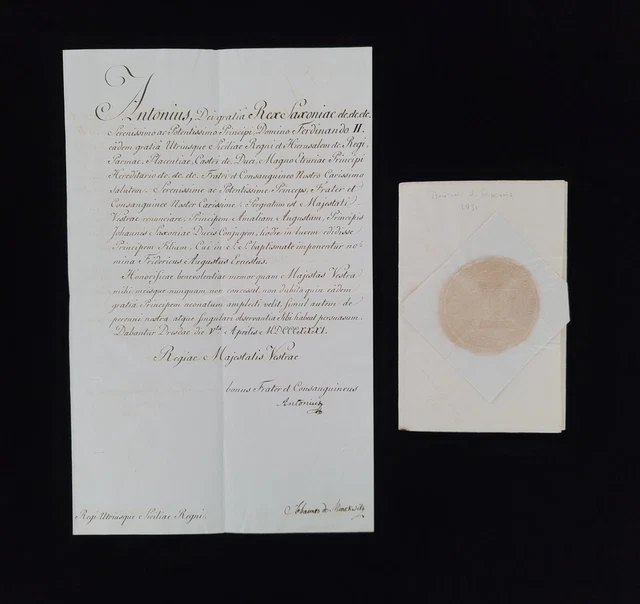 Antonius, Dei gratiâ Rex Saxoniae &c. &c. &c.
Serenissimo ac Potentissimo Principi, Domino Ferdinando II.
eâdem gratiâ Utriusque Siciliae Regni et Hierusalem &c. Regi,
Parmae, Placentiae, Castri &c. Duci, Magno Etruriae Principi
Hereditario &c. &c. &c. Fratri et Consanguineo Nostro Carissimo
Salutem. Serenissime ac Potentissime Princeps, Frater et
Consanguinee Noster Carissime. Pergratum est Majestati
Vestrae nunciare, Principem Amaliam Augustam, Principis
Johannis Saxoniae Ducis Conjugem, hodie in lucem edidisse
Principem Filium. Cui in S. Baptismate imponentur no-
mina: Fridericus Augustus Ernestus.
Honorificae benevolentiae memor quam Majestas Vestra
mihi meisque nunquam non concessit non dubito quin eâdem
gratiâ Principem neonatum amplecti velit, simul autem de
perenni nostrâ atque singulari observantiâ Sibi habeat persuasum.
Dabantur Dresdae die Vta Aprilis MDCCCXXXI.
Regiae Majestatis Vestrae
bonus Frater et Consanguineus
Antonius
Regi Utriusque Siciliae Regni.
1831